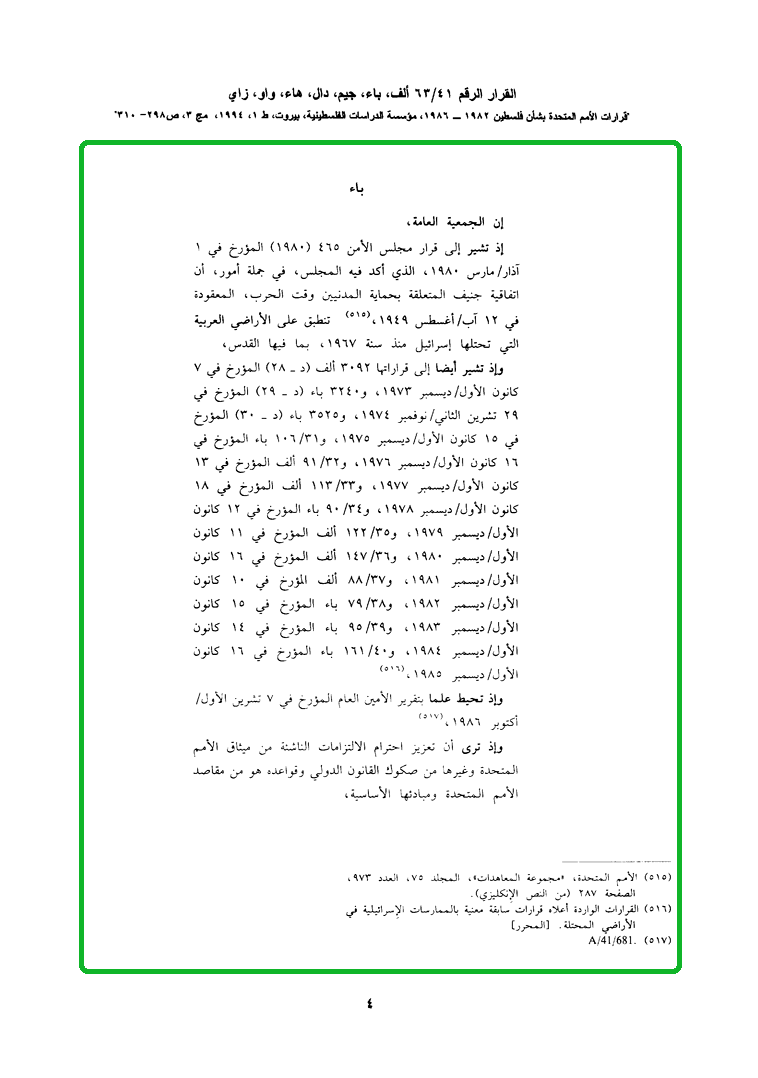 القرار الرقم ٦٣/٤١ ألف، باء، جيم، دال، هاء، واو، زاي
"قرارات الأمم المتحدة بشأن فلسطين ١٩٨٢ ــ ١٩٨٦، مؤسسة الدراسات الفلسطينية، بيروت، ط ١، ١٩٩٤، مج ٣، ص٢٩٨- ٣١٠"
باء
إن الجمعية العامة،
إذ تشير إلى قرار مجلس الأمن ٤٦٥ (١٩٨٠) المؤرخ في ١
آذار/مارس ١٩٨٠، الذي أكد فيه المجلس، في جملة أمور، أن
اتفاقية جنيف المتعلقة بحماية المدنيين وقت الحرب، المعقودة
في ١٢ آب/أغسطس ١٩٤٩،(٥١٥) تنطبق على الأراضي العربية
التي تحتلها إسرائيل منذ سنة ١٩٦٧، بما فيها القدس،
وإذ تشير أيضا إلى قراراتها ٣٠٩٢ ألف (د ـ ٢٨) المؤرخ في ٧
كانون الأول/ديسمبر ١٩٧٣، و٣٢٤٠ باء (د ـ ٢٩) المؤرخ في
٢٩ تشرين الثاني/نوفمبر ١٩٧٤، و٣٥٢٥ باء (د ـ ٣٠) المؤرخ
في ١٥ كانون الأول/ديسمبر ١٩٧٥، و١٠٦/٣١ باء المؤرخ في
١٦ كانون الأول/ديسمبر ١٩٧٦، و٩١/٣٢ ألف المؤرخ في ١٣
كانون الأول/ديسمبر ١٩٧٧، و١١٣/٣٣ ألف المؤرخ في ١٨
كانون الأول/ديسمبر ١٩٧٨، و٩٠/٣٤ باء المؤرخ في ١٢ كانون
الأول/ديسمبر ١٩٧٩، و١٢٢/٣٥ ألف المؤرخ في ١١ كانون
الأول/ديسمبر ١٩٨٠، و١٤٧/٣٦ ألف المؤرخ في ١٦ كانون
الأول/ديسمبر ١٩٨١، و٨٨/٣٧ ألف المؤرخ في ١٠ كانون
الأول/ديسمبر ١٩٨٢، و٧٩/٣٨ باء المؤرخ في ١٥ كانون
الأول/ديسمبر ١٩٨٣، و٩٥/٣٩ باء المؤرخ في ١٤ كانون
الأول/ديسمبر ١٩٨٤، و١٦١/٤٠ باء المؤرخ في ١٦ كانون
الأول/ديسمبر ١٩٨٥،(٥١٦)
وإذ تحيط علما بتقرير الأمين العام المؤرخ في ٧ تشرين الأول/
أكتوبر ١٩٨٦،(٥١٧)
وإذ ترى أن تعزيز احترام الالتزامات الناشئة من ميثاق الأمم
المتحدة وغيرها من صكوك القانون الدولي وقواعده هو من مقاصد
الأمم المتحدة ومبادئها الأساسية،
(٥١٥) الأمم المتحدة، «مجموعة المعاهدات»، المجلد ٧٥، العدد ٩٧٣،
الصفحة ٢٨٧ (من النص الإنكليزي).
(٥١٦) القرارات الواردة أعلاه قرارات سابقة معنية بالممارسات الإسرائيلية في
الأراضي المحتلة. [المحرر]
(٥١٧) A/41/681.
٤